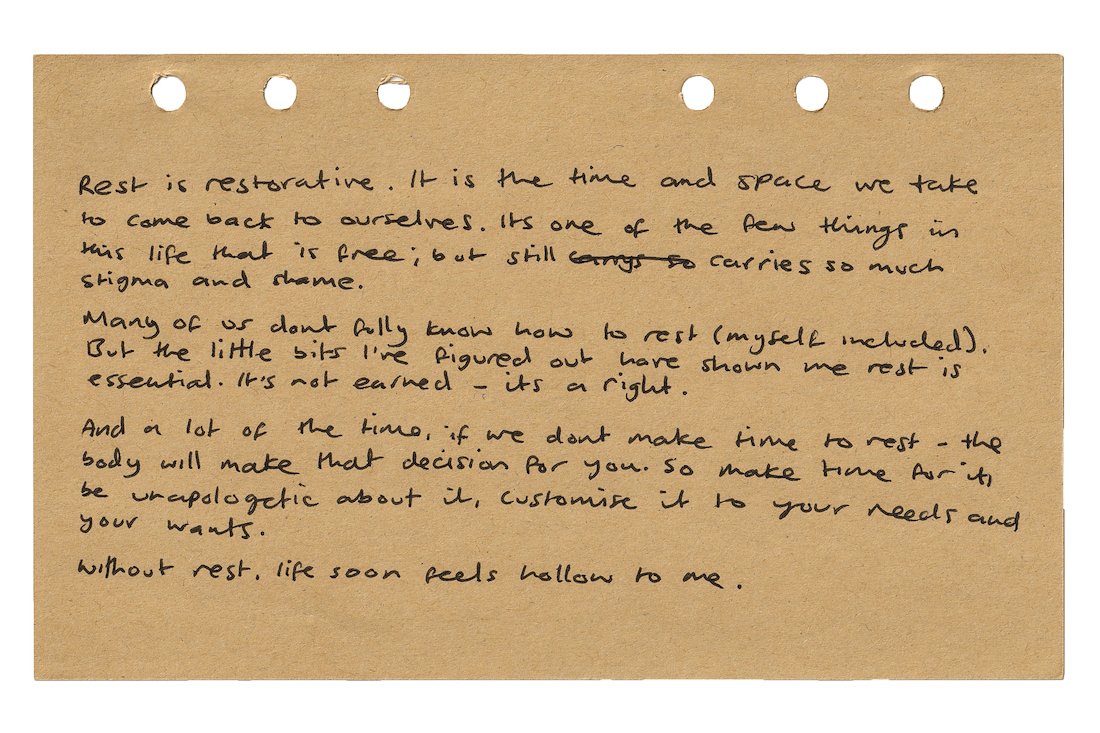 Rest is restorative. It is the time and space we take
to come back to ourselves. Its one of the few things in
this life that is free; but still carrys so carries so much
stigma and shame.
Many of us dont fully know how to rest (myself included).
But the little bits I've figured out have shown me rest is
essential. It's not earned - its a right.
And a lot of the time, if we dont make time to rest - the
body will make that decision for you. So make time for it,
be unapologetic about it, customise it to your needs and
your wants.
Without rest, life soon feels hollow to me.